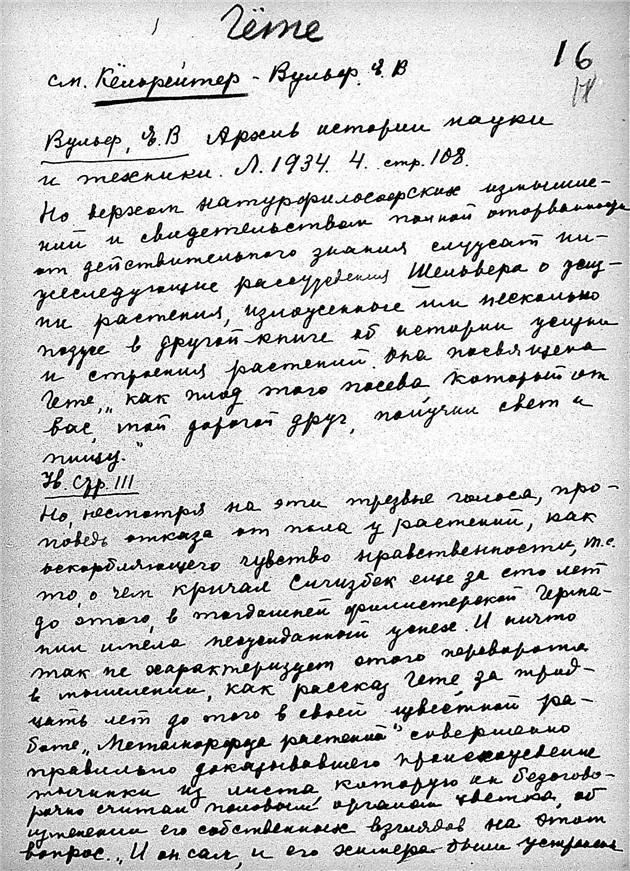 Гёте
16
см. Кёльрейтер - Вульф, Е. В
Вульф, Е. В Архив истории науки
и техники. Л. 1934. 4. стр. 108.
Но верхом натурфилософских измышле-
ний и свидетельством полной оторванности
от действительного знания служат ни-
жеследующие рассуждения Шельвера о жиз-
ни растения, изложенные им несколько
позже в другой книге об истории жизни
и строения растений. Она посвящена
Гете, "как плод того посева который от
вас, мой дорогой друг, получил свет и
пищу."
стр. 111
Но, несмотря на эти трезвые голоса, про-
поведь отказа от пола у растений, как
оскорбляющего чувство нравственности, т.е.
то, о чем кричал Сигизбек еще за сто лет
до этого, в тогдашней филистерской Герма-
нии имела неожиданный успех. И ничто
так не характеризует этого переворота
в мышлении, как рассказ Гете за трид-
цать лет до того в своей известной ра-
боте "Метаморфоза растений" совершенно
правильно доказывавшего происхождение
тычинки из листа которую он безогово-
рочно считал половым органом цветка, об
изменении его собственных взглядов на этот
вопрос. "И он сам, и его химера были устроены